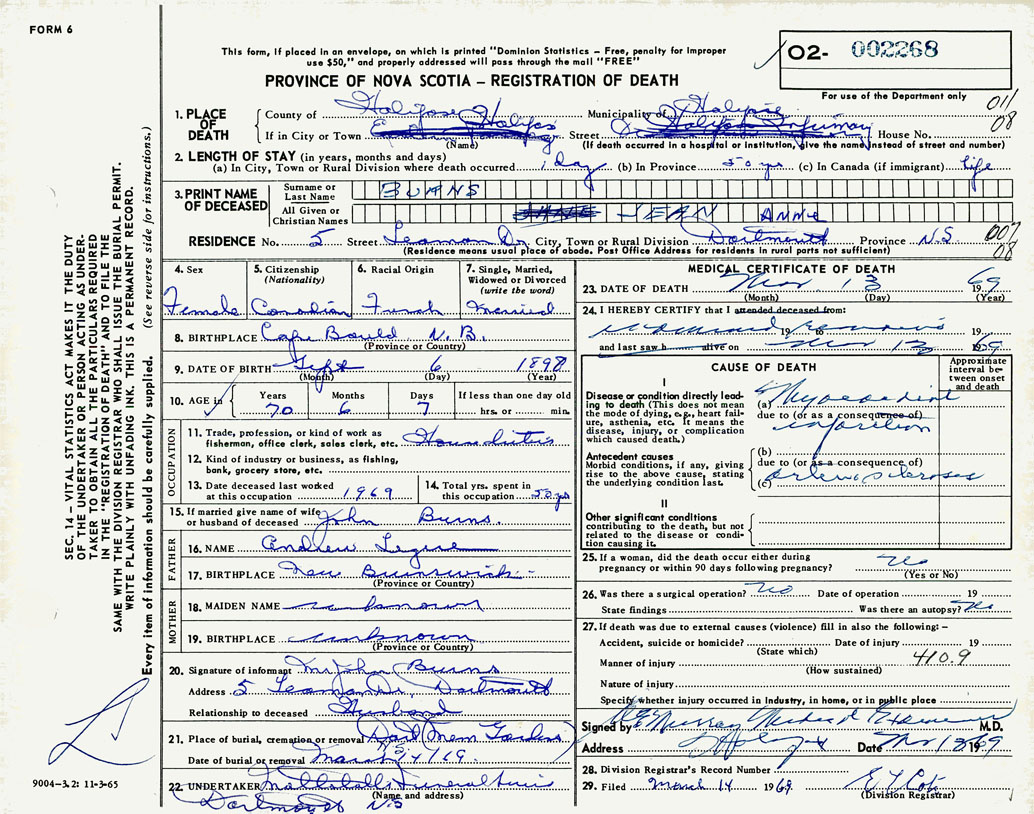 FORM 6
This form, if placed in an envelope, on which is printed "Dominion Statistics – Free, penalty for improper
use $50," and properly addressed will pass through the mail "FREE"
PROVINCE OF NOVA SCOTIA – REGISTRATION OF DEATH
O2- 002268
For use of the Department only
011
08
1. PLACE OF DEATH
County of Halifax Municipality of Halifax
If in City or Town Halifax Street Halifax Infirmary House No.
(Name) (If death occurred in a hospital or institution, give the name instead of street and number)
2. LENGTH OF STAY (in years, months and days)
(a) In City, Town or Rural Division where death occurred 1 day (b) In Province 50 yrs (c) In Canada (if immigrant) life
3. PRINT NAME OF DECEASED
Surname or Last Name BURNS
All Given or Christian Names JEAN ANNIE
RESIDENCE No. 5 Street Leaman Dr. City, Town or Rural Division Dartmouth Province N.S.
(Residence means usual place of abode. Post Office Address for residents in rural parts not sufficient)
007
08
4. Sex
Female
5. Citizenship
(Nationality)
Canadian
6. Racial Origin
French
7. Single, Married,
Widowed or Divorced
(write the word)
Married
8. BIRTHPLACE Cape Bauld N.B.
(Province or Country)
9. DATE OF BIRTH Sept 6 1898
(Month) (Day) (Year)
10. AGE in
Years Months Days If less than one day old
70 6 7 hrs. or min.
OCCUPATION
11. Trade, profession, or kind of work as
fisherman, office clerk, sales clerk, etc. Housduties
12. Kind of industry or business, as fishing,
bank, grocery store, etc.
13. Date deceased last worked
at this occupation 1969
14. Total yrs. spent in
this occupation 50 yrs
15. If married give name of wife
or husband of deceased John Burns.
FATHER
16. NAME Andrew Legere
17. BIRTHPLACE New Brunswick
(Province or Country)
MOTHER
18. MAIDEN NAME unknown
19. BIRTHPLACE unknown
(Province or Country)
20. Signature of informant Mr John Burns
Address 5 Leaman Dr, Dartmouth
Relationship to deceased Husband
21. Place of burial, cremation or removal Dart Mem Gardens
N.S.
Date of burial or removal March /69
22. UNDERTAKER Mattatalls Funeral
(Name and address)
Dartmouth N.S
MEDICAL CERTIFICATE OF DEATH
23. DATE OF DEATH Mar 13 1969
(Month) (Day) (Year)
24. I HEREBY CERTIFY that I attended deceased from:
19 to 19
and last saw h alive on Mar 13 1969
CAUSE OF DEATH
Approximate
interval be-
tween onset
and death
I
Disease or condition directly lead-
ing to death (This does not mean
the mode of dying, e.g., heart fail-
ure, asthenia, etc. It means the
disease, injury, or complication
which caused death.)
(a) Myocardial
due to (or as a consequence of)
infarction
Antecedent causes
Morbid conditions, if any, giving
rise to the above cause, stating
the underlying condition last.
(b)
due to (or as a consequence of)
(c) arteriosclerosis
II
Other significant conditions
contributing to the death, but not
related to the disease or condi-
tion causing it.
25. If a woman, did the death occur either during
pregnancy or within 90 days following pregnancy? No
(Yes or No)
26. Was there a surgical operation? No Date of operation 19
State findings Was there an autopsy? No
27. If death was due to external causes (violence) fill in also the following: –
Accident, suicide or homicide? Date of injury 19
(State which)
410.9
Manner of injury
(How sustained)
Nature of injury
Specify whether injury occurred in industry, in home, or in public place
Signed by Murray Medical Examiner M.D.
Address Hfx Date Mar 13 1969
28. Division Registrar's Record Number
29. Filed March 14 1969
(Division Registrar)
SEC. 14 – VITAL STATISTICS ACT MAKES IT THE DUTY
OF THE UNDERTAKER OR PERSON ACTING AS UNDER-
TAKER TO OBTAIN ALL THE PARTICULARS REQUIRED
IN THE "REGISTRATION OF DEATH" AND TO FILE THE
SAME WITH THE DIVISION REGISTRAR WHO SHALL ISSUE THE BURIAL PERMIT.
WRITE PLAINLY WITH UNFADING INK. THIS IS A PERMANENT RECORD.
Every item of information should be carefully supplied. (See reverse side for instructions.)
9004-3.2: 11-3-65